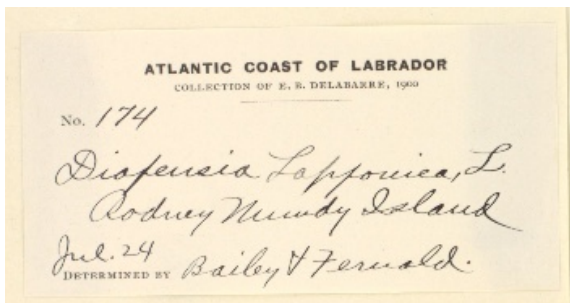 ATLANTIC COAST OF LABRADOR
COLLECTION OF E. B. DELABARRE, 1900
No. 174
Diapensia Lapponica, L.
Rodney Mundy Island
Jul. 24
DETERMINED BY Bailey & Fernald.